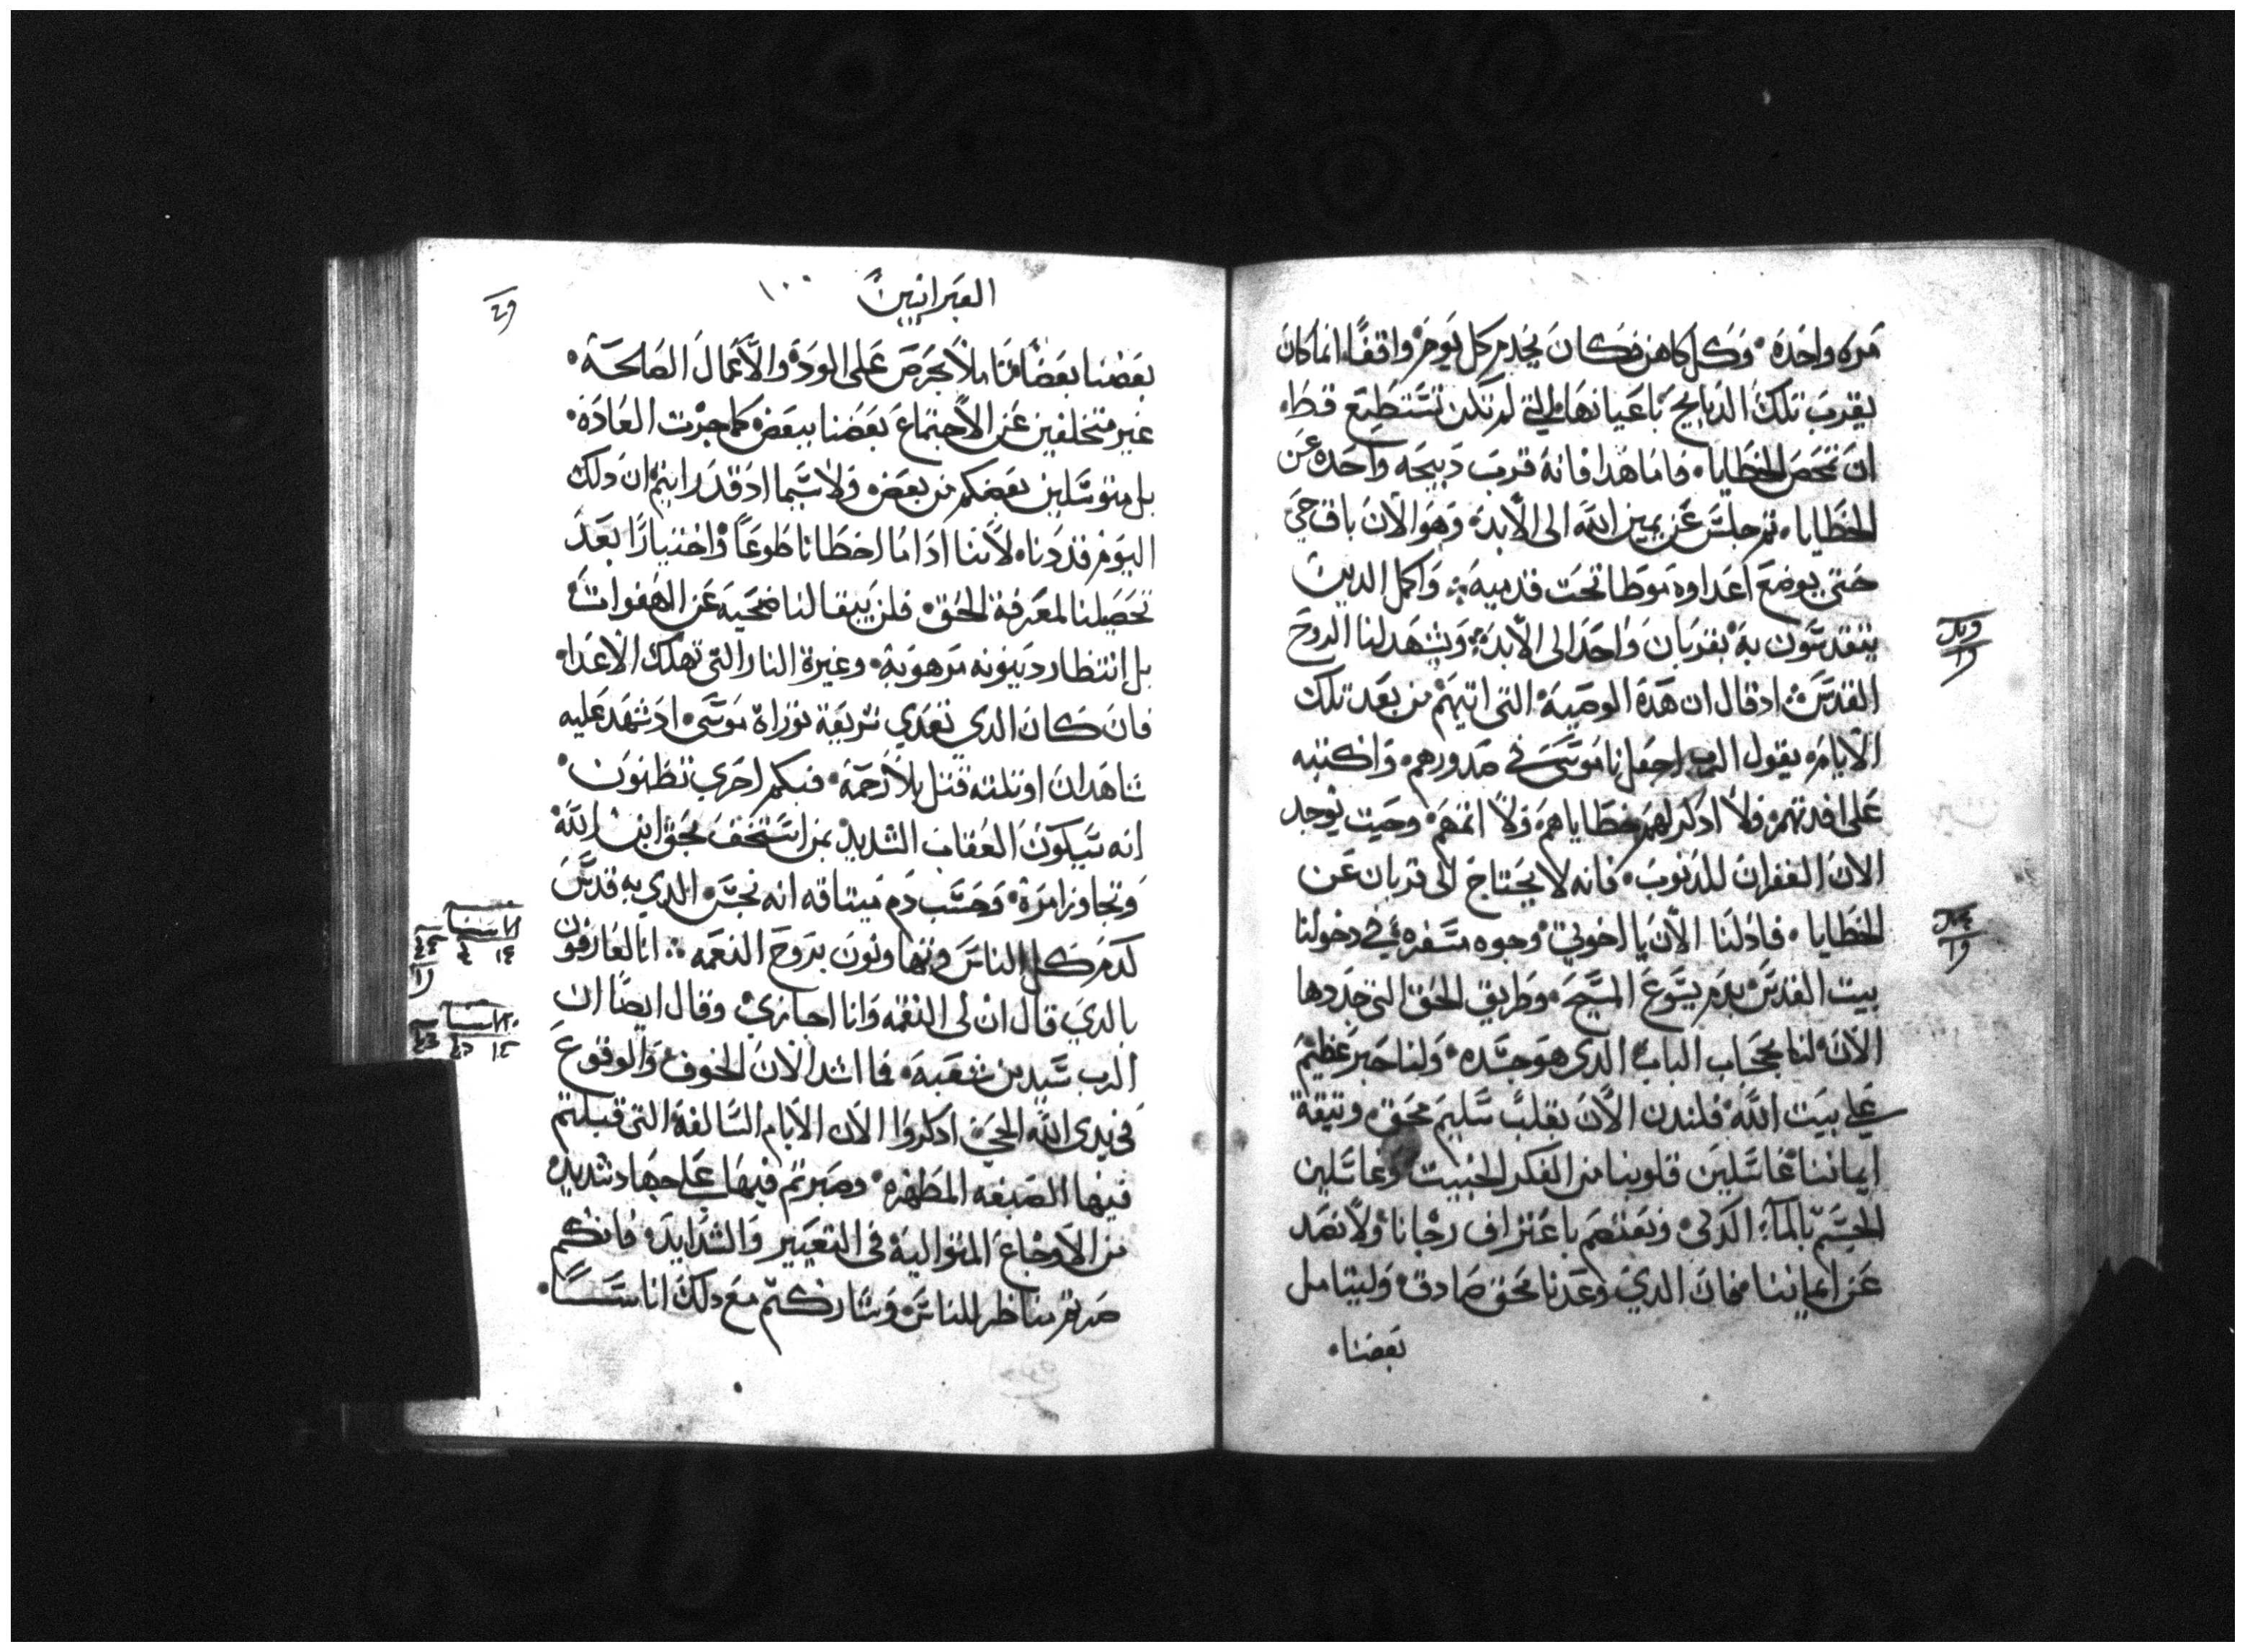 مره واحده • وكل كاهن فكان يخدم كل يوم واقفا انما كان
يقرب تلك الدبايح باعيانها التي لم تكن تستطيع قط
ان تمحص الخطايا • فاما هدا فانه قرب دبيحه واحده عن
الخطايا • ثم جلس عن يمين الله الى الابد • وهو الان باق حي
حتى يوضع اعداوه موطا تحت قدميه • واكمل الدين
يتقدسون به بقربان واحد الى الابد • ويشهد لنا الروح
القدس اد قال ان هده الوصية التي اتيهم من بعد تلك
الايام • يقول الرب اجعل ناموسي في صدورهم • واكتبه
على افدتهم • ولا ادكر لهم خطاياهم ولا اثمهم • وحيت يوجد
الان الغفران للدنوب • فانه لا يحتاج الى قربان عن
الخطايا • فاد لنا الان يا اخوتي وجوه مسفره في دخولنا
بيت القدس بدم يسوع المسيح • وطريق الحق التي جددها
الان لنا بحجاب الباب الدي هو جسده • ولنا حبر عظيم
على بيت الله فلندن الان بقلب سليم محق وتيقة
ايماننا غاسلين قلوبنا من الفكر الخبيت وغاسلين
الجسم بالماء الدكي • ونعتصم باعتراف رجانا ولا نصد
عن ايماننا فان الدي وعدنا محق صادق • وليتامل
بعضنا •
العبرانيين
١٠٠
بعضنا بعضا تاملا يحرص على الودة والاعمال الصالحة •
غير متخلفين عن الاجتماع بعضنا ببعض كما جرت العادة •
بل متوسلين بعضكم من بعض ولا سيما اد قد رايتم ان دلك
اليوم قد دنا • لاننا ادا ما اخطانا طوعا واختيارا بعد
تحصيلنا لمعرفة الحق • فلن يبقا لنا ضحيه عن الهفوات
بل انتظار دينونه مرهوبة • وغيرة النار التي تهلك الاعدا •
فان كان الدي تعدي شريعة توراة موسى • اد شهد عليه
شاهدان او تلته قتل بلا رحمة • فبكم احرى تظنون •
انه سيكون العقاب الشديد بمن استخف بحق ابن الله
وتجاوز امرة • وحسب دم ميتاقه انه نجس الدي به قدس
كدم كل الناس وتهاونون بروح النعمه • انا لعارفون
بالدي قال ان لى النقمه وانا اجازي • وقال ايضا ان
الرب سيدين شعبه • فما اشد الان الخوف والوقوع
في يدى الله الحي • ادكروا الان الايام السالفة التي قبلتم
فيها الصبغه المطهره • وصبرتم فيها على جهاد شديد
من الاوجاع المتوالية في التعيير والشدايد • فانكم
صرتم مناظر للناس • وشاركتم مع دلك اناسا •